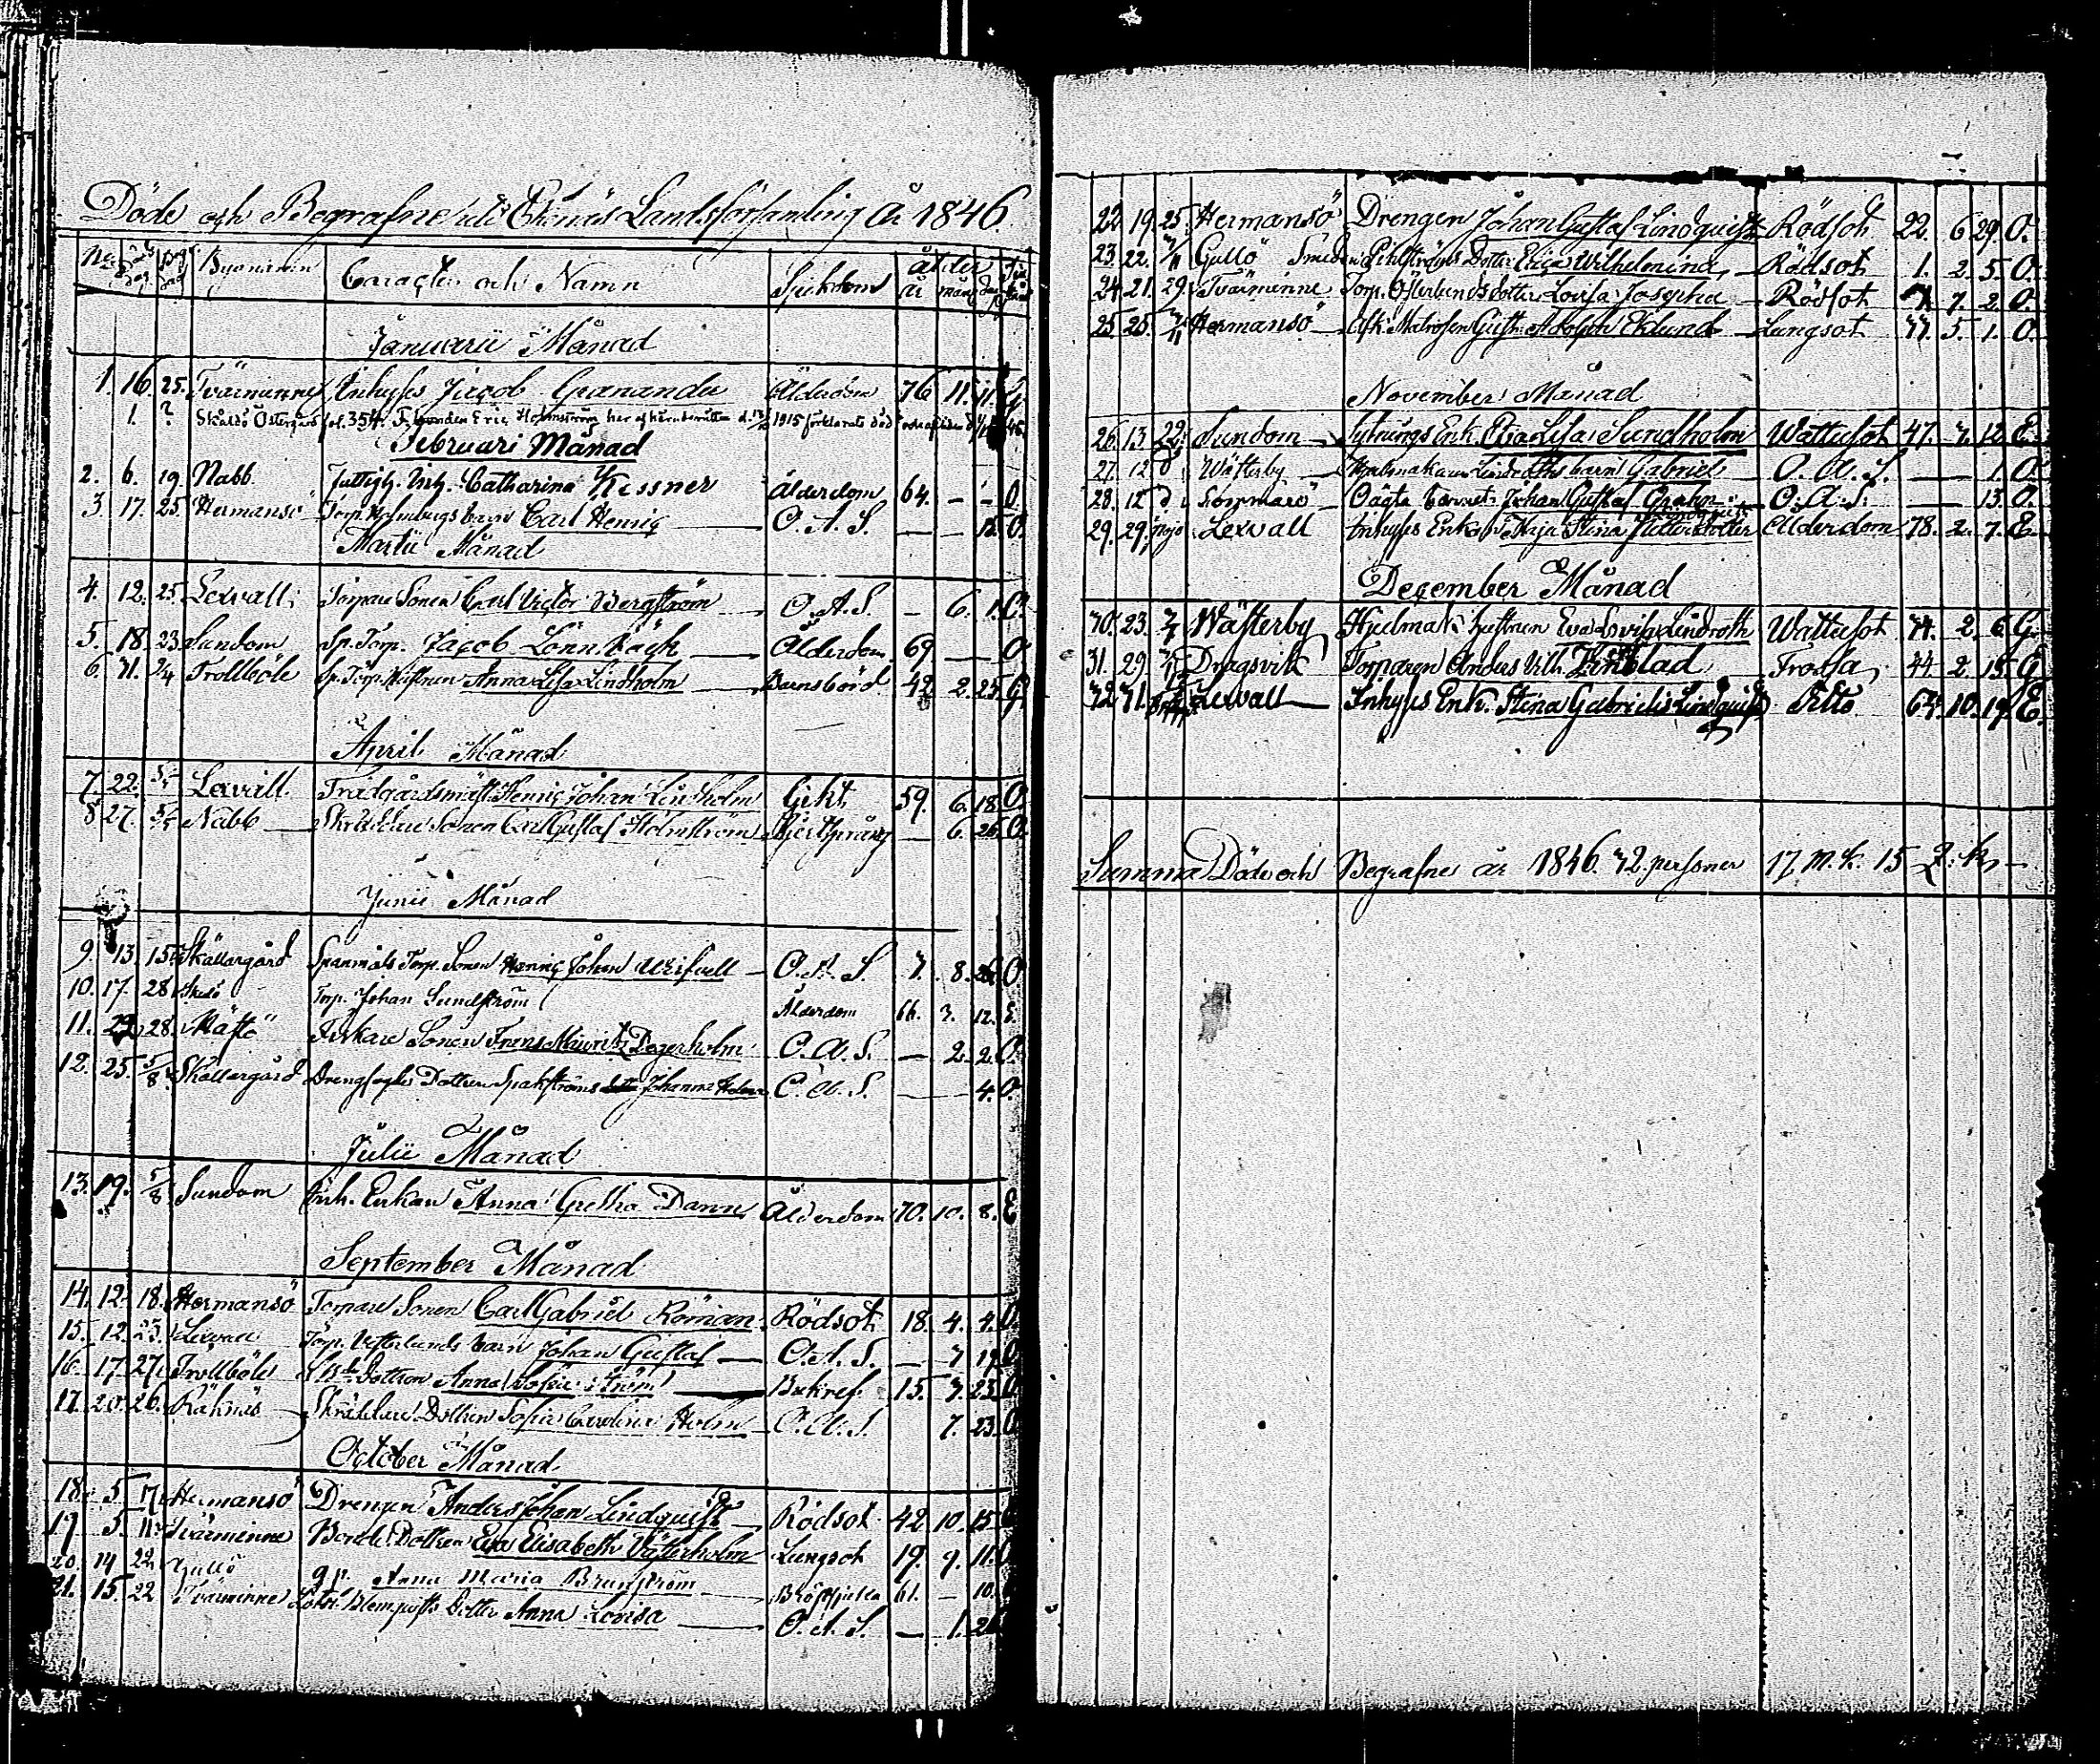 Döde och Begrafne uti Ekenäs Landsförsamling År 1846.
No Död dag Beg dag Byanamn Caracter och Namn Sjukdom ålder år mån dag
Januarii Månad
1. 16. 25. Tvärminne Inhyses Jacob Granander Ålderdom 76 11. 11. G.
1. ? Skåldö Östergård fol. 354. Eric Holmström har af häradsrätten d. 1915 förklarats död
Februari Månad
2. 6. 19. Nabb Fattigh. Enk. Catharina Kessner Ålderdom 64. – – O.
3 17. 25 Hermansö Torp. Holmbergs barn Carl Henric O. A. S. – – 12. O.
Martii Månad
4. 12. 25. Lexvall Torpare Sonen Carl Victor Bergström O. A. S. – 6. 1. O.
5. 18. 23. Sundom Sp. Torp. Jacob Lönnbäck Ålderdom 69 – O
6. 31. 2/4 Trollböle Sp. Torp. Hustrun Anna Lisa Lindholm Barnsbörd 42. 2. 25. G.
April Månad
7. 22. 3/5 Lexvall Trädgårdsmäst. Henric Johan Lindholm Gikt 59. 6. 18. O.
8 27. 3/5 Nabb Skräddare Sonen Carl Gustaf Holmström – 6. 26. O.
Junii Månad
9. 13. 15. Skällargård Spanmåls Torp. Sonen Henric Johan O. A. S. 7. 8. 26. O.
10. 17. 28 Torp. Johan Sundström Ålderdom 66. 3. 12. E.
11. 28. Fiskare Sonen Frans Mauritz Degerholm O. A. S. – 2. 2. O.
12. 25. 5/8 Skällargård Dottren Spakströms Johanna O. A. S. – – 4. O.
Julii Månad
13. 19. 5/8 Sundom Inh. Enkan Anna Gretha Dann Ålderdom 70. 10. 8. E
September Månad
14. 12. 18. Hermansö Torpare Sonen Carl Gabriel Röman Rödsot 18. 4. 4. O.
15. 12. 23. Lexvall Torp. Vesterlunds barn Johan Gustaf O. A. S. – 7 19. O
16. 17. 27. Trollböle Dottren Anna Sofia Ström 15. 7. 23. O
17. 20. 26. Räknäs Skräddare Dottren Sofia Carolina Holm O. A. S. 7. 23. O
October Månad
18. 5 7. Hermansö Drengen Anders Johan Lindquist Rödsot 42. 10. 15
19 5. 11. Tvärminne Bonde Dottren Eva Elisabeth Västerholm Lungsot 19. 9. 11.
20. 14 22 Gullö Anna Maria Brunström Bröstsjuka 61. – 10.
21. 15. 22 Tvärminne Dotter Anna Lovisa O. A. S. – 1. 26
22. 19. 25. Hermansö Drengen Johan Gustaf Lindquist Rödsot 22. 6 29. O.
23. 22. 1/11 Gullö Smeden Dotter Erica Wilhelmina Rödsot 1. 2. 5. O.
24. 21. 29. Tvärminne Torp. Österlunds dotter Lovisa Josepha Rödsot 7. 2. O.
25. 25. Hermansö Afsk. Matrosen Gust. Adolph Eklund Lungsot 77. 5. 1. O.
November Månad
26. 13. 22. Sundom Sytnings Enk. Eva Lisa Sundholm Wattusot 47. 7. 12. E.
27. 12 Wästerby Lindroths barn Gabriel O. A. S. – 1. O.
28. 12 Sommarö Oägta barnet Johan Gustaf Grahn O. A. S. – 13. O.
29. 29. Lexvall Inhyses Enkan Maja Stina Ålderdom 78. 2. 7. E.
December Månad
30. 23. Wästerby Hjulmak. hustrun Eva Lovisa Lindroth Wattusot 74. 2. 6. G.
31. 29. Dragsvik Torparen Anders Vilh. Frossa 44. 2. 15. G
32. 31. Lexvall Inhyses Enk. Stina Gabrielis Lindquist 64. 10. 19. E.
Summa Döde och Begrafne år 1846. 32. personer 17 M. k. 15 Q. k.